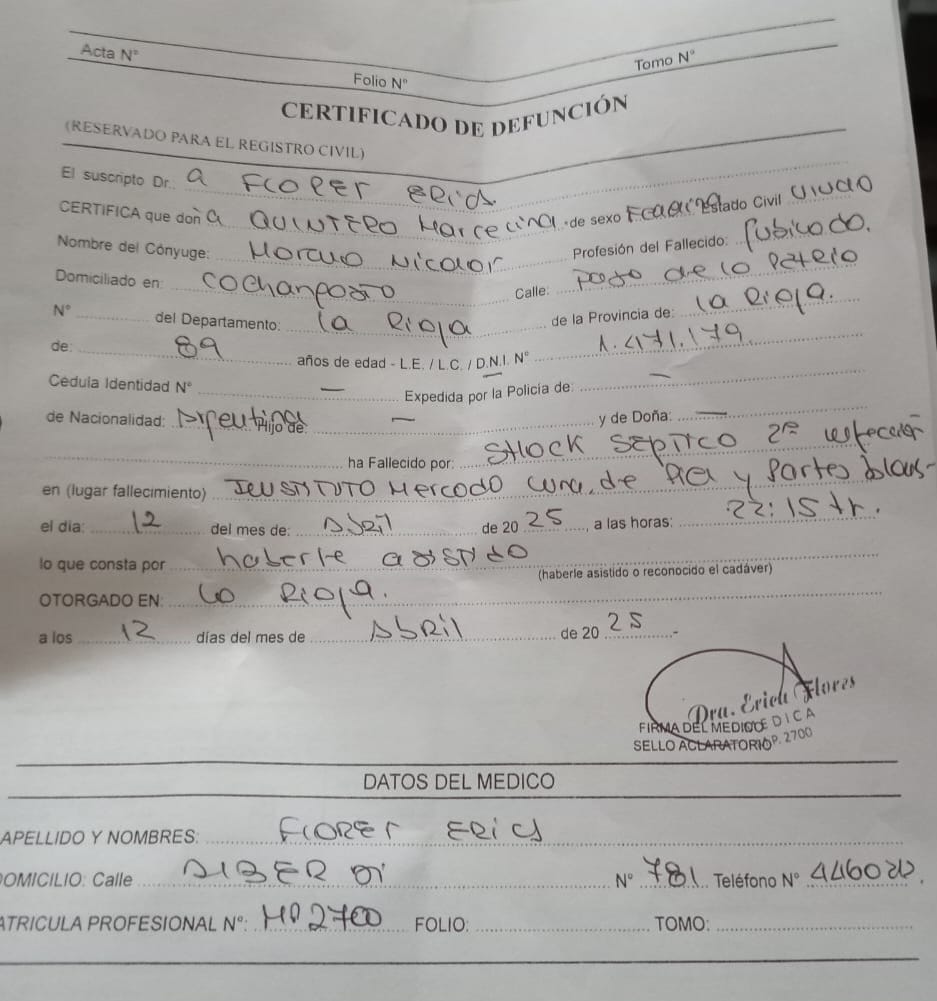 Acta N°
Folio N°
Tomo N°
CERTIFICADO DE DEFUNCIÓN
(RESERVADO PARA EL REGISTRO CIVIL)
El suscripto Dr.: a FLORES ERICA
CERTIFICA que don a QUINTERO Marcelina de sexo Estado Civil viuda
Nombre del Cónyuge: Horacio Nicador Profesión del Fallecido: Jubilado.
Domiciliado en: Cochangasta Calle: de la
N° del Departamento: La Rioja de la Provincia de: La Rioja.
de: 89 años de edad - L.E. / L.C. / D.N.I. N° 1.471.179
Cedula Identidad N° — Expedida por la Policía de: —
de Nacionalidad: Argentina Hijo de: — y de Doña: —
ha Fallecido por: SHOCK SEPTICO 2º infección
en (lugar fallecimiento) INSTITUTO Mercado Luna, de Piel y Partes blan-
el día: 12 del mes de: Abril de 20 25, a las horas: 22:15 hr.
lo que consta por haberle asistido
(haberle asistido o reconocido el cadáver)
OTORGADO EN: La Rioja.
a los 12 días del mes de Abril de 20 25.-
Dra. Erica Flores
MEDICA
FIRMA DEL MEDICO
SELLO ACLARATORIO
M.P. 2700
DATOS DEL MEDICO
APELLIDO Y NOMBRES: FLORES ERICA
DOMICILIO: Calle ALBERDI N° 781 Teléfono N°
MATRICULA PROFESIONAL N°: MP 2700 FOLIO: TOMO: